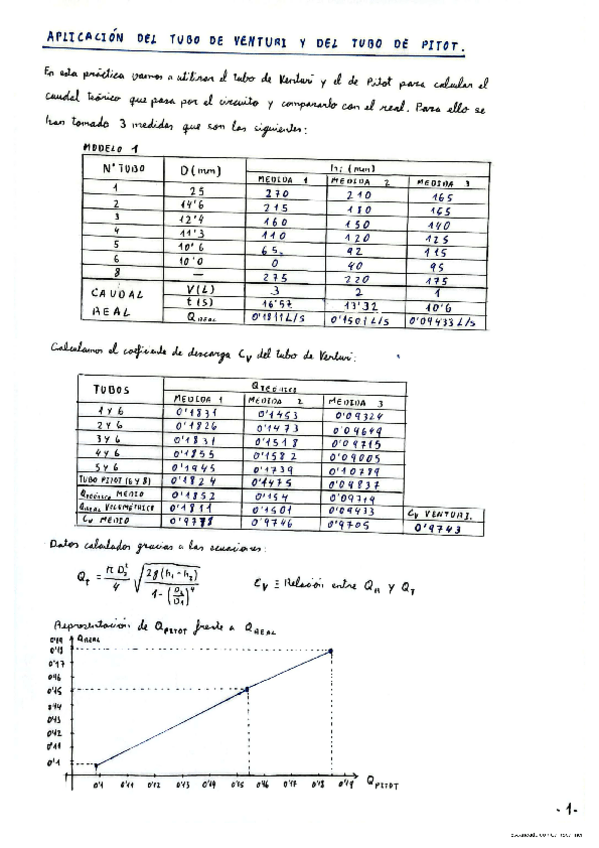 APLICACIÓN DEL TUBO DE VENTURI Y DEL TUBO DE PITOT.
En esta práctica vamos a utilizar el tubo de Venturi y el de Pitot para calcular el
caudal teórico que pasa por el circuito y compararlo con el real. Para ello se
han tomado 3 medidas que son las siguientes:
MODELO 1
Nº TUBO D (mm) hi (mm)
MEDIDA 1 MEDIDA 2 MEDIDA 3
1 25 270 210 165
2 14'6 215 180 165
3 12'4 160 150 140
4 11'3 110 120 125
5 10'6 65 92 115
6 10'0 0 40 95
8 — 275 220 175
CAUDAL REAL V(L) 3 2 1
t(s) 16'57 13'32 10'6
QREAL 0'1811 L/S 0'1501 L/S 0'09433 L/S
Calculamos el coeficiente de descarga Cv del tubo de Venturi:
TUBOS QTEÓRICO
MEDIDA 1 MEDIDA 2 MEDIDA 3
1 y 6 0'1831 0'1453 0'09324
2 y 6 0'1826 0'1473 0'09649
3 y 6 0'1831 0'1518 0'09715
4 y 6 0'1855 0'1582 0'09005
5 y 6 0'1945 0'1739 0'10789
TUBO PITOT (6 y 8) 0'1824 0'1475 0'09837
QTEÓRICO MEDIO 0'1852 0'154 0'09719
QREAL VOLUMÉTRICO 0'1811 0'1501 0'09433 CV VENTURI.
CV MEDIO 0'9778 0'9746 0'9705 0'9743
Datos calculados gracias a las ecuaciones:
QT = π D2² / 4 √ 2g(h1-h2) / 1-(D2/D1)⁴ CV ≡ Relación entre QR y QT
Representación de QPITOT frente a QREAL
0'19 QREAL
0'18
0'17
0'16
0'15
0'14
0'13
0'12
0'11
0'1
0'1 0'11 0'12 0'13 0'14 0'15 0'16 0'17 0'18 0'19 QPITOT
- 1 -